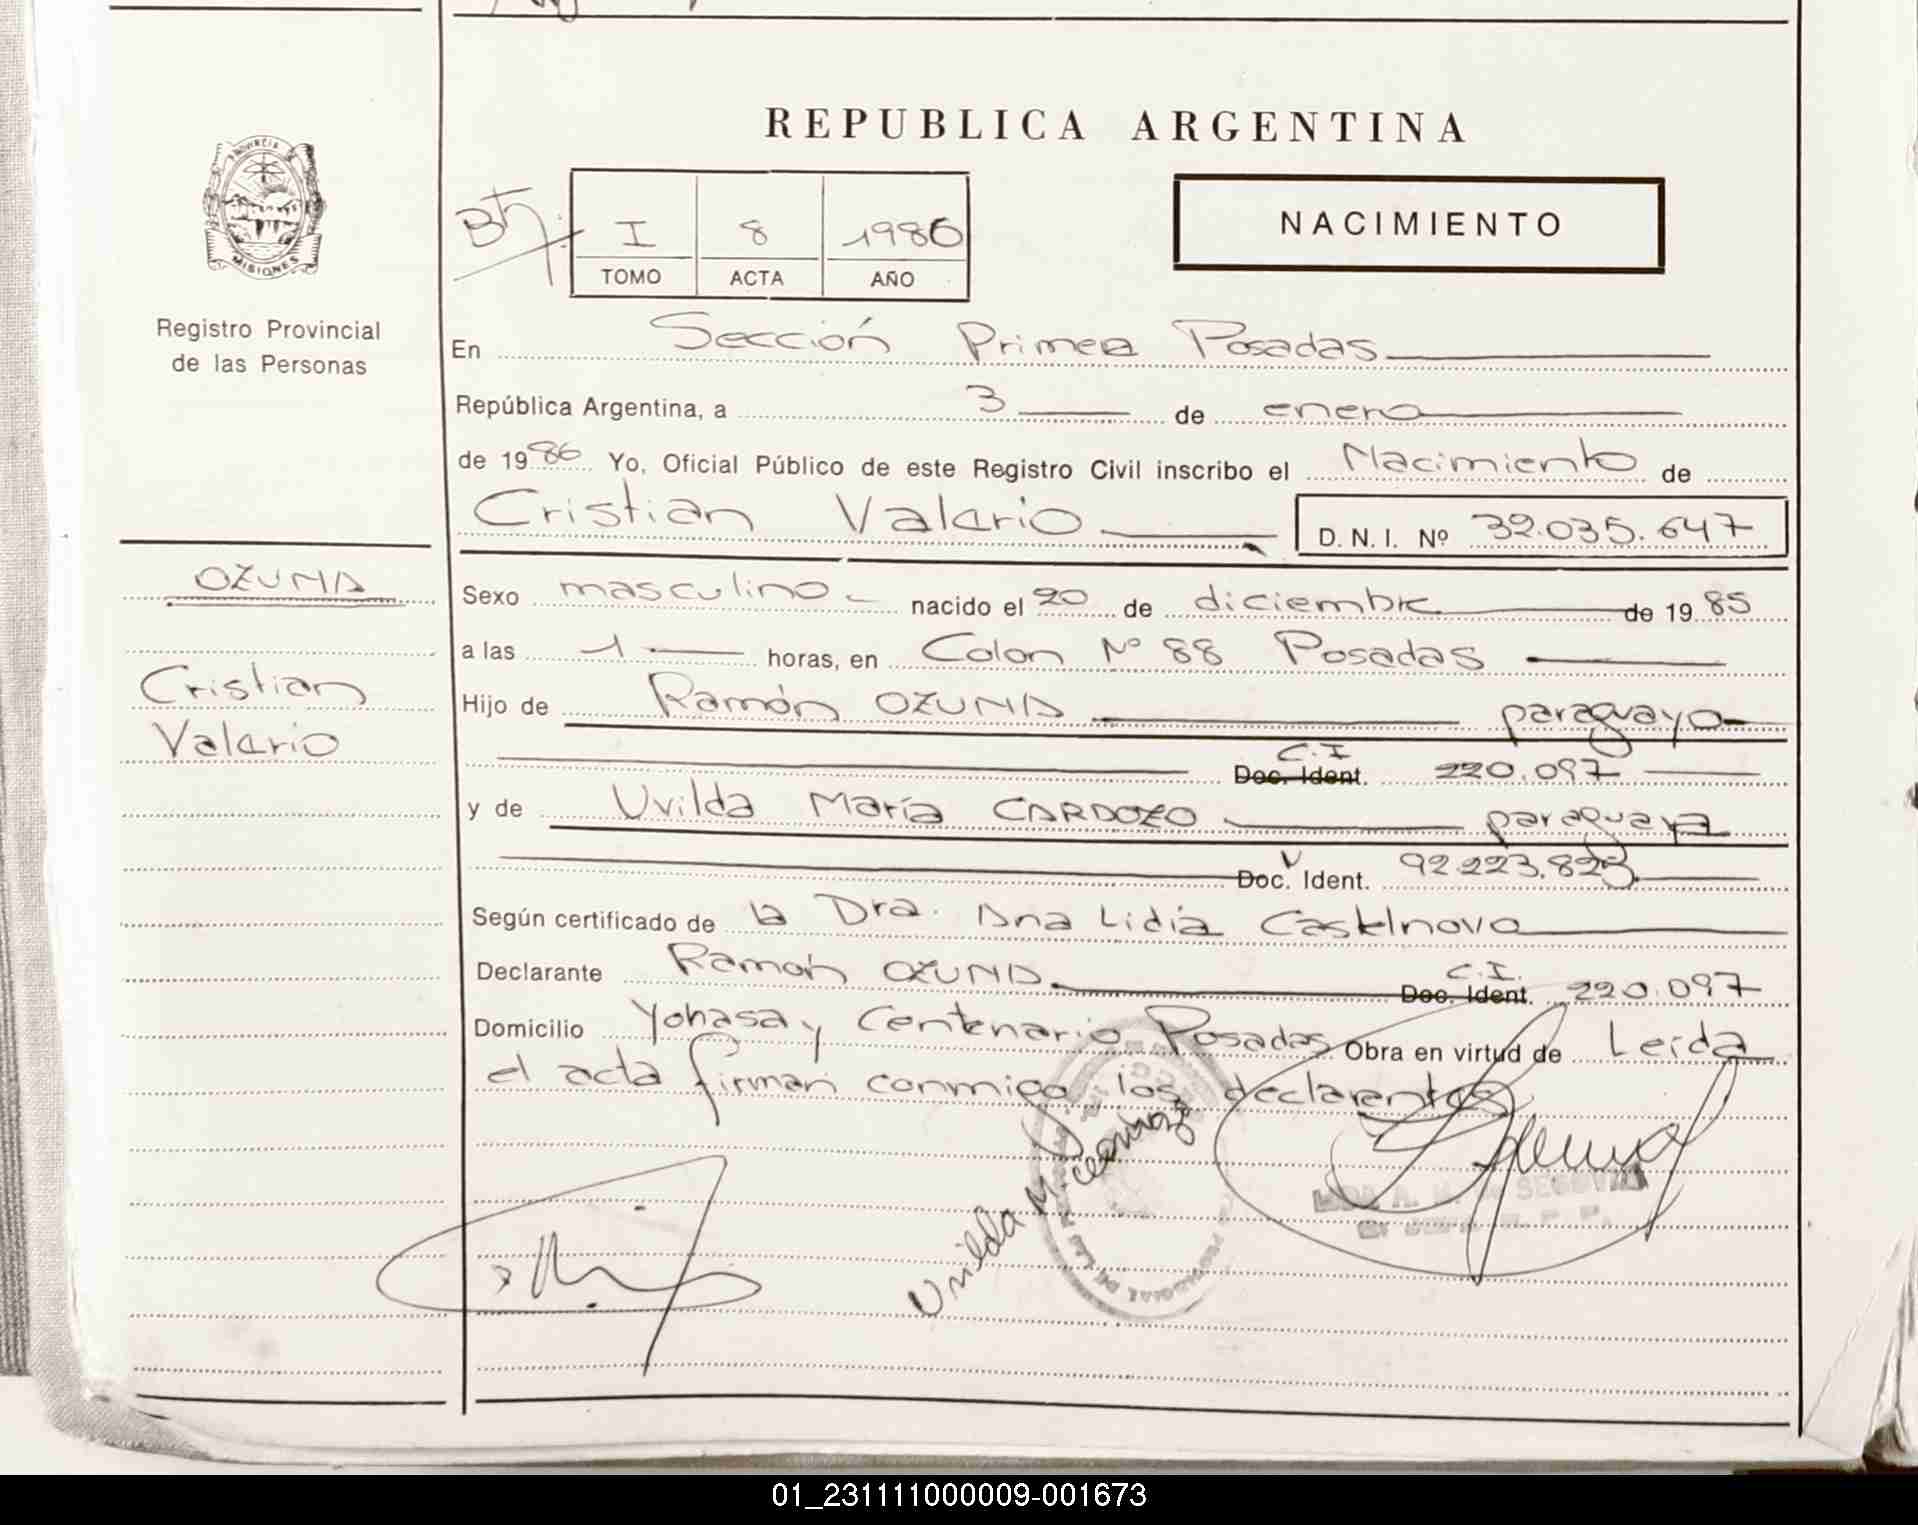 REPUBLICA ARGENTINA
PROVINCIA DE
MISIONES
Registro Provincial
de las Personas
I 8 1986
TOMO ACTA AÑO
NACIMIENTO
En Sección Primera Posadas
República Argentina, a 3 de enero
de 1986 Yo, Oficial Público de este Registro Civil inscribo el Nacimiento de
Cristian Valerio D. N. I. Nº 32.035.647
OZUNA
Cristian
Valerio
Sexo masculino nacido el 20 de diciembre de 1985
a las 1 horas, en Colon Nº 88 Posadas
Hijo de Ramón OZUNA paraguayo
C.I
Doc. Ident. 220.097
y de Uvilda María CARDOZO paraguaya
Doc. Ident. 92.223.823
Según certificado de la Dra. Ana Lidia Castelnovo
Declarante Ramón OZUNA C.I. Doc. Ident. 220.097
Domicilio Yohasa y Centenario Posadas Obra en virtud de Leida
el acta firman conmigo los declarantes
Uvilda M.
PROVINCIAL DE LAS
A. M. de SEGOVIA
01_231111000009-001673